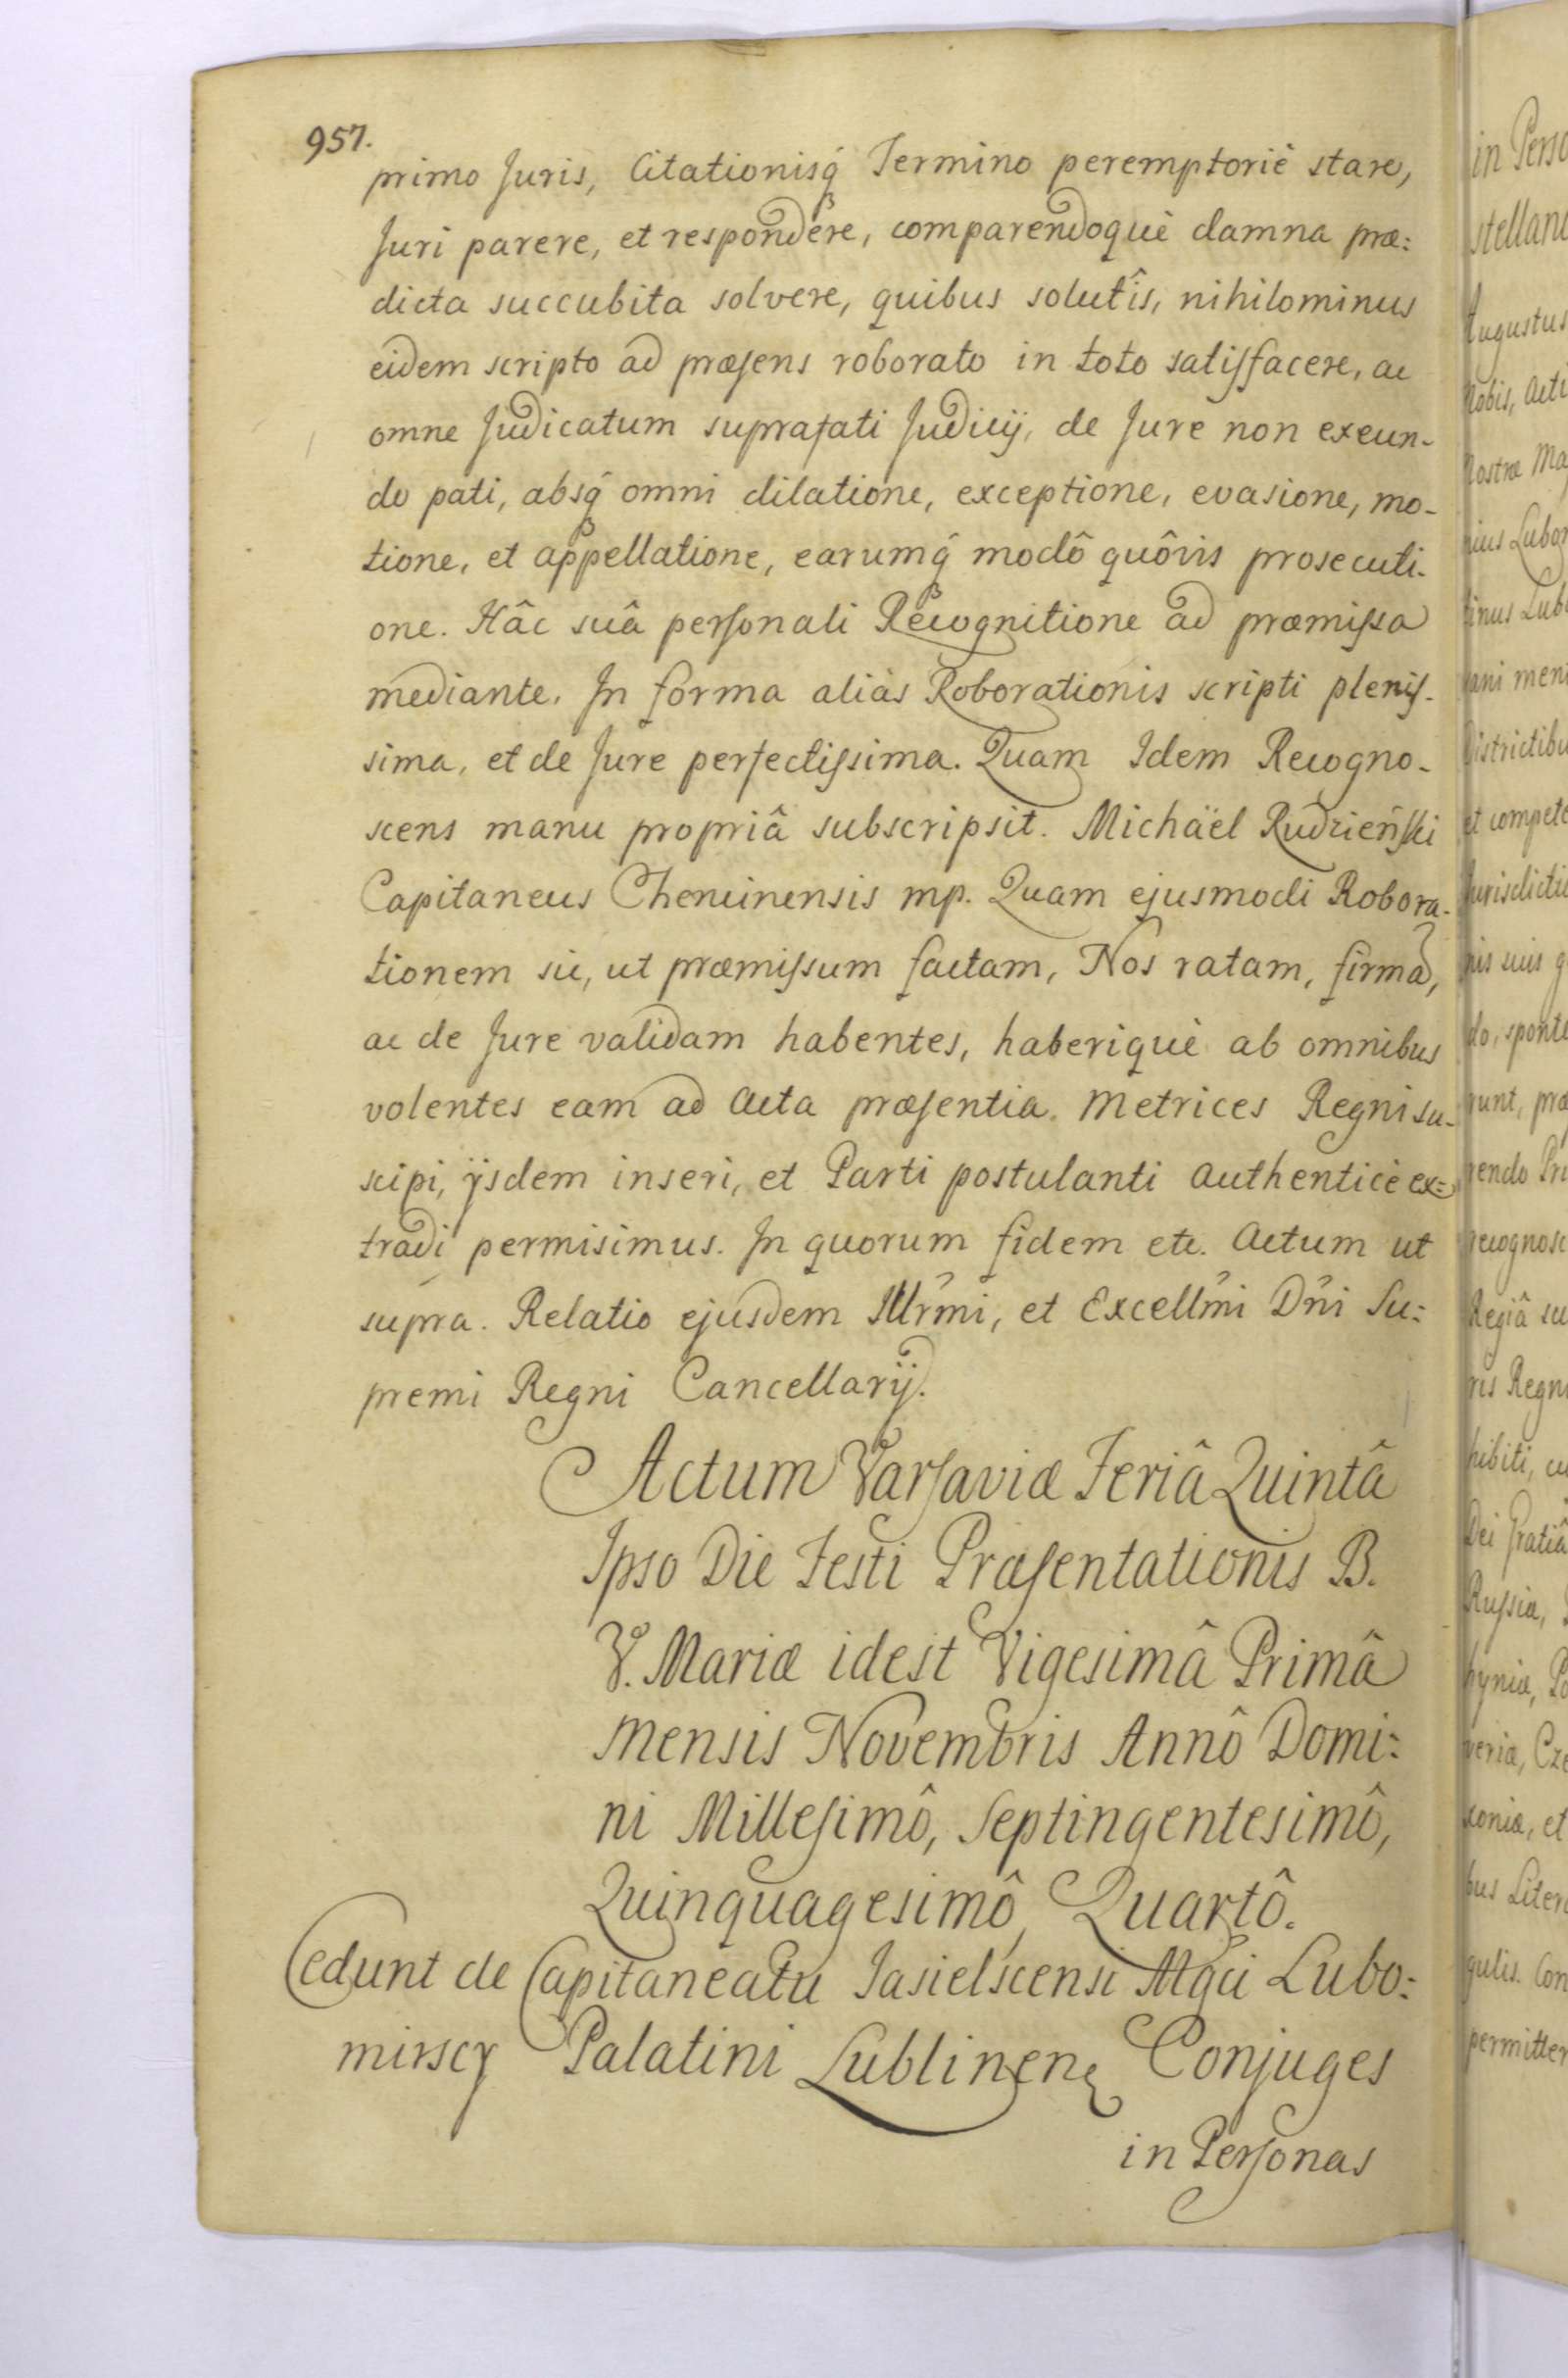 957.
primo Juris, Citationisq́ Termino peremptoriè stare,
Juri parere, et respondere, comparendoquè damna præ:
dicta succubita solvere, quibus solutîs, nihilominus
eidem scripto ad præsens roborato in toto satisfacere, ac
omne Judicatum suprafati Judicij, de Jure non exeun-
do pati, absq́ omni dilatione, exceptione, evasione, mo-
tione, et appellatione, earumq́ modô quôvis prosecuti-
one. Hâc suâ personali Recognitione ad præmissa
mediante. In forma aliàs Roborationis scripti plenis-
sima, et de Jure perfectissima. Quam Idem Recogno-
scens manu propriâ subscripsit. Michaël Rudzieński
Capitaneus Chencinensis mp. Quam ejusmodi Robora-
tionem sic, ut præmissum factam, Nos ratam, firmã,
ac de Jure validam habentes, haberiquè ab omnibus
volentes eam ad Acta præsentia Metrices Regni su-
scipi, ijsdem inseri, et Parti postulanti authenticè ex=
tradi permisimus. In quorum fidem etc. Actum ut
supra. Relatio ejusdem Illr̃mi, et Excellm̃i Dñi Su:
premi Regni Cancellarij.
Actum Varsaviæ Feriâ Quintâ
Ipso Die Festi Præsentationis B.
V. Mariæ idest Vigesimâ Primâ
Mensis Novembris Annô Domi:
ni Millesimô, Septingentesimô,
Quinquagesimô, Quartô.
Cedunt de Capitaneatu Jasielscensi Mgci Lubo:
mirscy Palatini Lublinen. Conjuges
in Personas
in Perso
stellane
Augustus
Nobis, Acti
Nostræ Ma
nius Lubor
tinus Lubl
ani men
Districtibu
et compete
Jurisdictio
nis suis q
do, sponte
runt, præ
rendo Pri
recognosc
Regiâ su
ris Regni
hibiti, cu
Dei Gratiâ
Russiæ,
hyniæ, Po
veriæ, Cze
xoniæ, et
bus Liter
gulis. Con
permitter